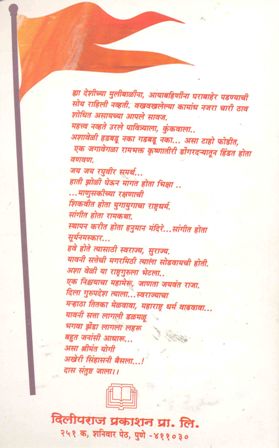 ह्या देशीच्या मुलीबाळींना, आयाबहिणींना घराबाहेर पडण्याची
सोय राहिली नव्हती. वखवखलेल्या कामांध नजरा चारी ठाव
शोधित असायच्या आपले सावज.
महत्त्व नव्हते उरले पावित्र्याला, कुंकवाला..
अशावेळी हडबडू नका गडबडू नका... असा टाहो फोडीत,
एक जगावेगळा रामभक्त कृष्णातीरी डोंगरदऱ्यातून हिंडत होता
वणवण.
जय जय रघुवीर समर्थ...
हाती झोळी घेऊन मागत होता भिक्षा ..
...माणुसकीच्या रक्षणाची
शिकवीत होता युगायुगाचा राष्ट्रधर्म.
सांगीत होता रामकथा.
स्थापन करीत होता हनुमान मंदिरे...सांगीत होता
सूर्यनमस्कार...
हवे होते त्यासाठी स्वराज्य, सुराज्य.
यावनी सत्तेची मगरमिठी त्याला सोडवायची होती.
अशा वेळी या राष्ट्रगुरुला भेटला..
एक निश्चयाचा महामेरू, जाणता जयवंत राजा.
दिला गुरुपदेश त्याला...स्वराज्याचा
मऱ्हाठा तितका मेळवावा, महाराष्ट्र धर्म वाढवावा...
यावनी सत्ता लागली डळमळू
भगवा झेंडा लागला लहरू
बहुत जनांसी आधारू...
असा श्रीमंत योगी
अखेरी सिंहासनी बैसला...!
दास संतुष्ट जाला।।
दिलीपराज प्रकाशन प्रा. लि.
२५१ क, शनिवार पेठ, पुणे -४११०३०